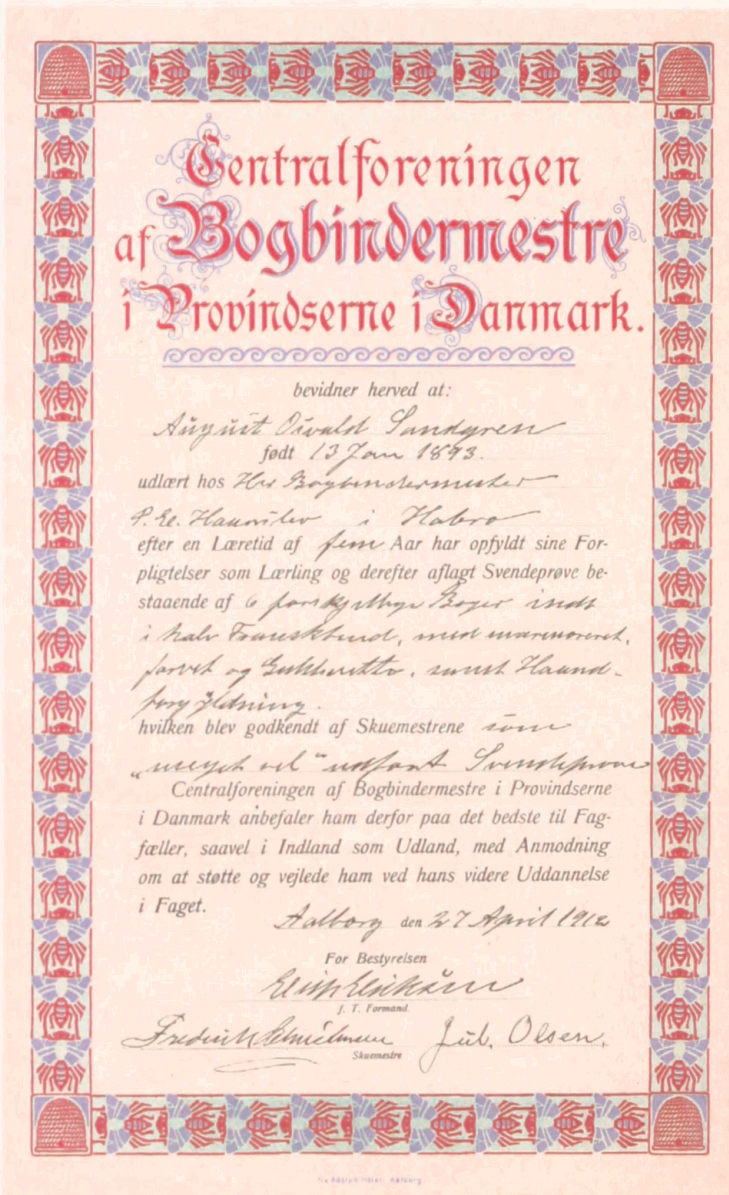 Centralforeningen
af Bogbindermestre
i Provindserne i Danmark.
bevidner herved at:
August Osvald Sandgren
født 13 Jan 1893.
udlært hos Hr Bogbindermester
i Hobro
efter en Læretid af fem Aar har opfyldt sine For-
pligtelser som Lærling og derefter aflagt Svendeprøve be-
staaende af 6 forskjellige Bøger indb
i halv Franskbind, med marmoreret,
farvet og Guldsnitte, samt Haand-
forgyldning.
hvilken blev godkendt af Skuemestrene som
„meget vel" udført Svendeprøve
Centralforeningen af Bogbindermestre i Provindserne
i Danmark anbefaler ham derfor paa det bedste til Fag-
fæller, saavel i Indland som Udland, med Anmodning
om at støtte og vejlede ham ved hans videre Uddannelse
i Faget.
Aalborg den 27 April 1912
For Bestyrelsen
J. T. Formand.
Frederik Jul. Olsen.
Skuemestre
Aalborg